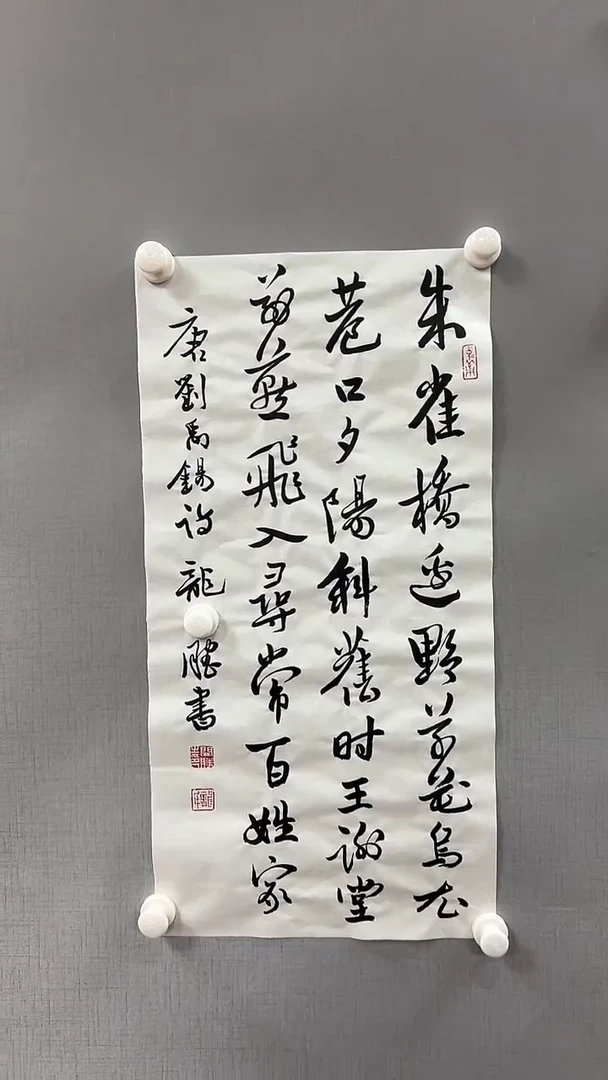 朱雀橋邊野草花烏衣
巷口夕陽斜舊时王謝堂
前燕飛入尋常百姓家
唐劉禹錫詩龍騰書